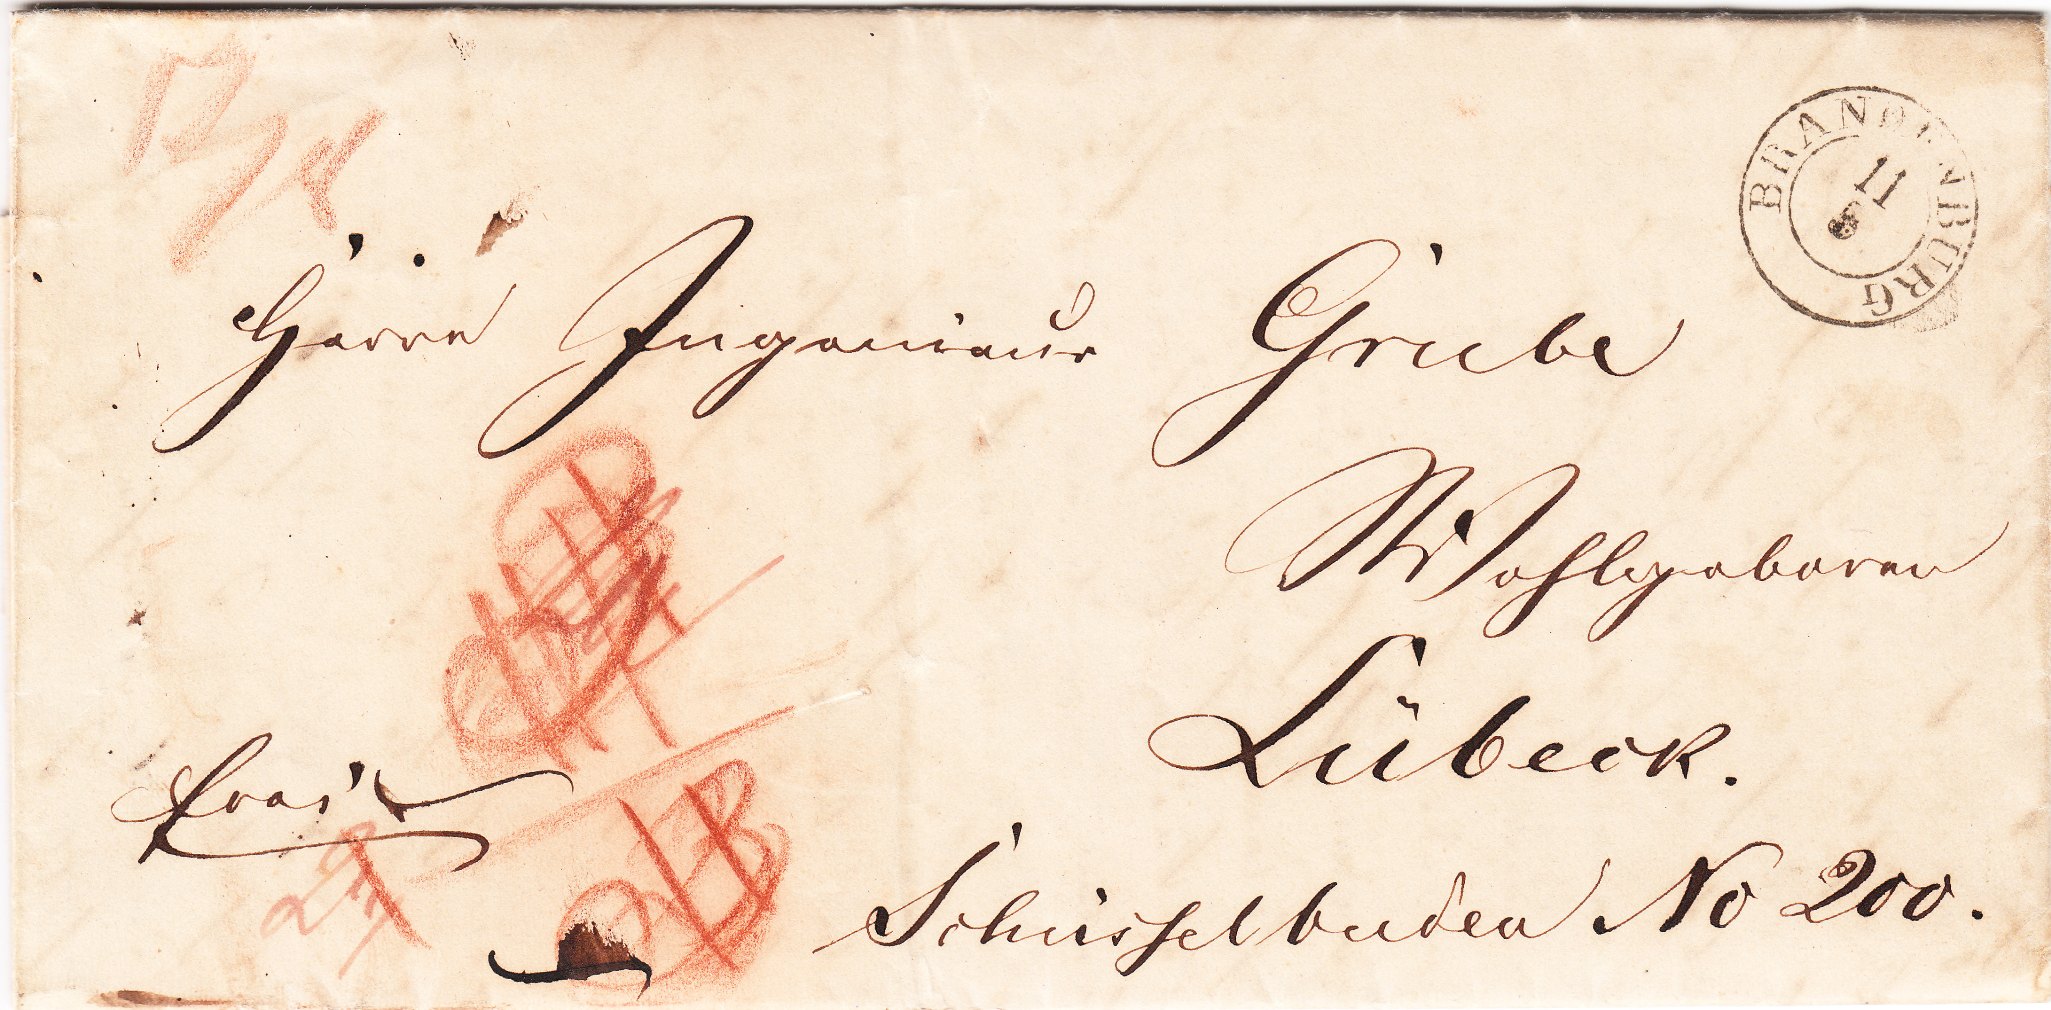 BRANDENBURG
11
8
Herrn Ingenieur Grube
Wohlgeboren
Lübeck.
frei
Schüsselbuden No 200.